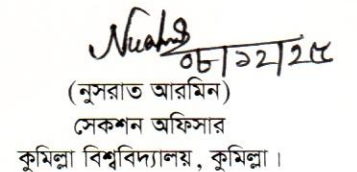 ০৮/১২/২৫
(নুসরাত আরমিন)
সেকশন অফিসার
কুমিল্লা বিশ্ববিদ্যালয়, কুমিল্লা।